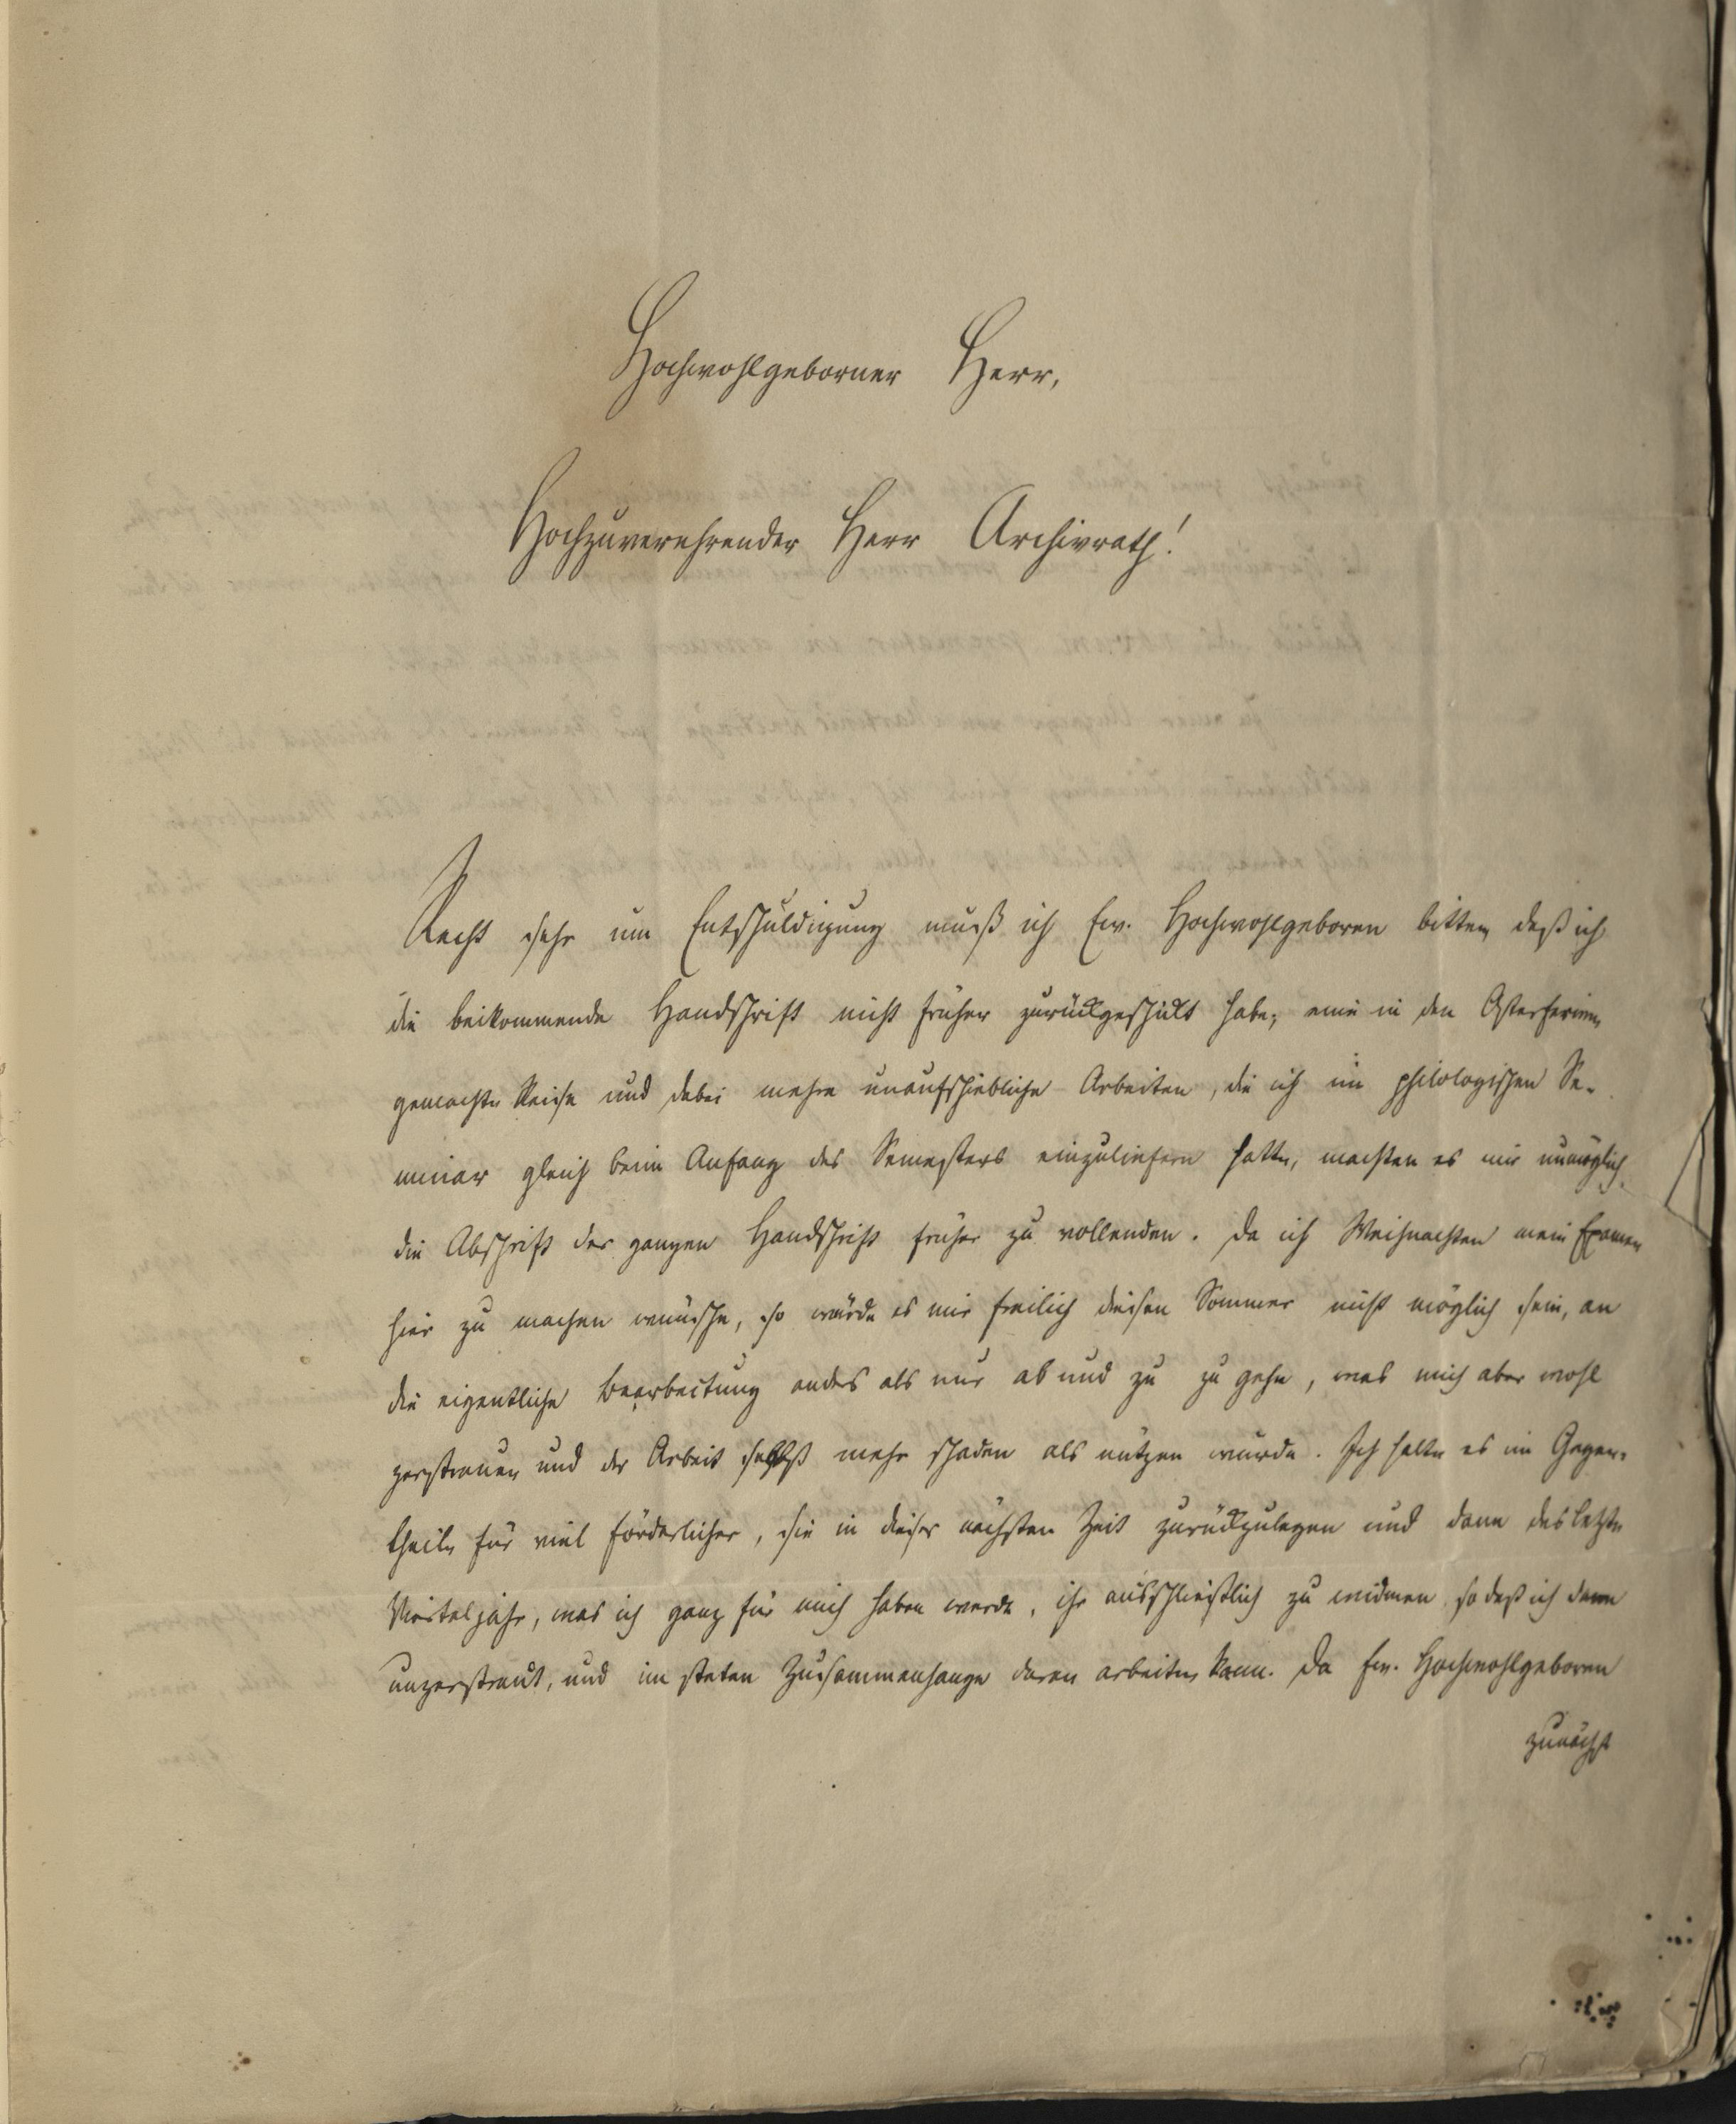 Hochwohlgeborner Herr,
Hochzuverehrender Herr Archivrath!
Recht sehr um Entschuldigung muß ich Ew. Hochwohlgeboren bitten, daß ich
die beikommende Handschrift nicht früher zurückgeschickt habe; eine in den Osterferien
gemachte Reise und dabei mehre unaufschiebliche Arbeiten, die ich im philologischen Se-
minar gleich beim Anfang des Semesters einzuliefern hatte, machten es mir unmöglich,
die Abschrift der ganzen Handschrift früher zu vollenden. Da ich Weihnachten mein Examen
hier zu machen wünsche, so würde es mir freilich diesen Sommer nicht möglich sein, an
die eigentliche Bearbeitung anders als nur ab und zu zu gehn, was mich aber wohl
zerstreuen und der Arbeit selbst mehr schaden als nützen würde. Ich halte es im Gegen-
theile für viel förderlicher, sie in dieser nächsten Zeit zurückzulegen und dann das letzte
Vierteljahr, was ich ganz für mich haben werde, ihr ausschließlich zu widmen, so daß ich dann
unzerstreut, und im steten Zusammenhange daran arbeiten kann. Da Ew. Hochwohlgeboren
zunächst